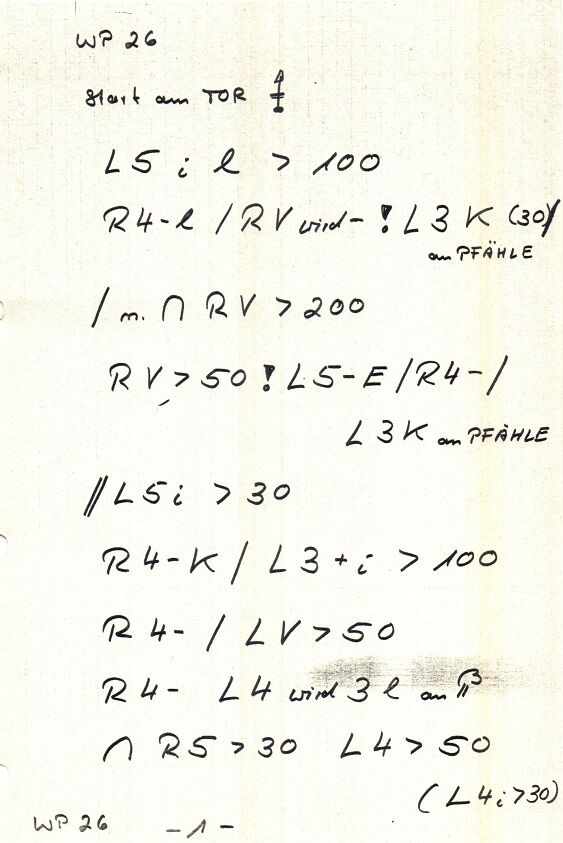 WP 26
Start am TOR
L5 i l > 100
R4-l / RV wird - ! L3 K (30)/
am PFÄHLE
/ m. ∩ RV > 200
RV > 50 ! L5-E / R4- /
L3K am PFÄHLE
// L5 i > 30
R4-K / L3+i > 100
R4- / LV > 50
R4- L4 wird 3 l am
∩ R5 > 30 L4 > 50
(L4 i > 30)
WP 26 -1-